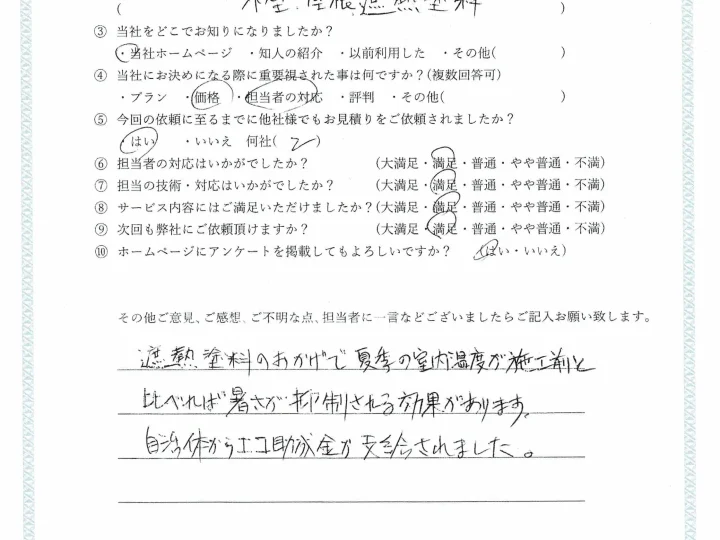 ( 外壁・屋根遮熱塗料 )
③ 当社をどこでお知りになりましたか?
・当社ホームページ ・知人の紹介 ・以前利用した ・その他( )
④ 当社にお決めになる際に重要視された事は何ですか?(複数回答可)
・プラン ・価格 ・担当者の対応 ・評判 ・その他( )
⑤ 今回の依頼に至るまでに他社様でもお見積りをご依頼されましたか?
・はい ・いいえ 何社( 2 )
⑥ 担当者の対応はいかがでしたか? (大満足・満足・普通・やや普通・不満)
⑦ 担当の技術・対応はいかがですか? (大満足・満足・普通・やや普通・不満)
⑧ サービス内容にはご満足いただけましたか?(大満足・満足・普通・やや普通・不満)
⑨ 次回も弊社にご依頼頂けますか? (大満足・満足・普通・やや普通・不満)
⑩ ホームページにアンケートを掲載してもよろしいですか? (はい・いいえ)
その他ご意見、ご感想、ご不明な点、担当者に一言などございましたらご記入お願い致します。
遮熱塗料のおかげで夏季の室内温度が施工前と
比べれば暑さが抑制される効果があります。
自治体からエコ助成金が支給されました。